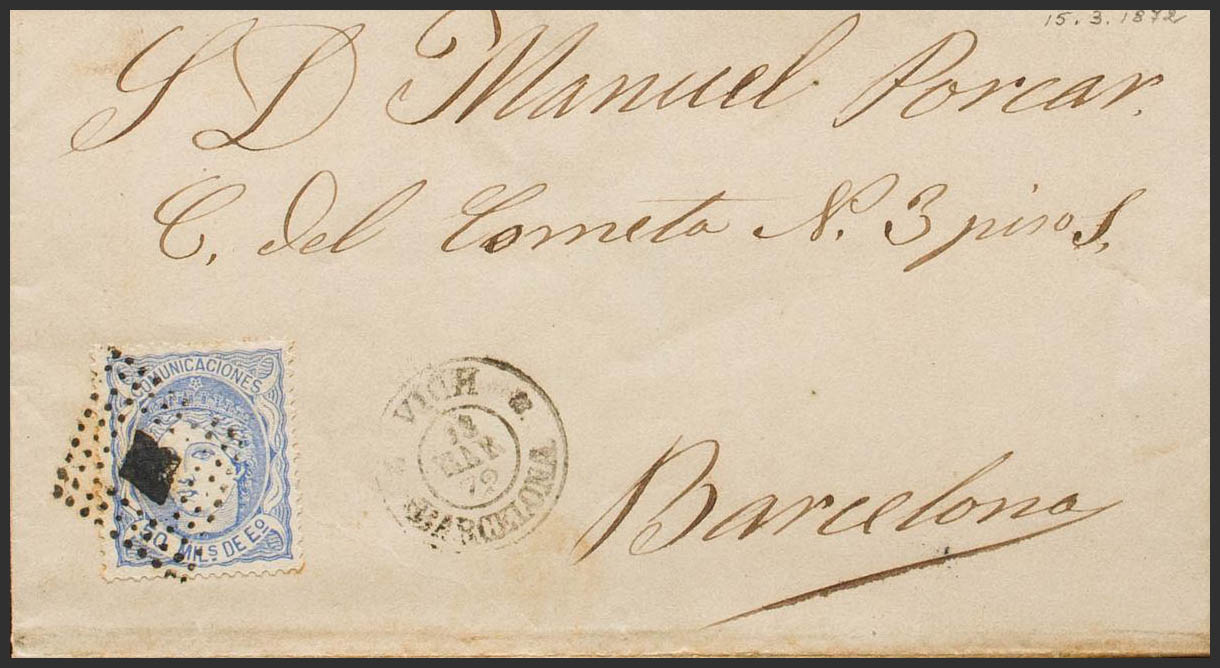 15.3.1872
S D Manuel Porcar.
C. del Cometa N. 3 piso 1,
COMUNICACIONES
50 MILS DE EO
VICH
MAR
BARCELONA
Barcelona